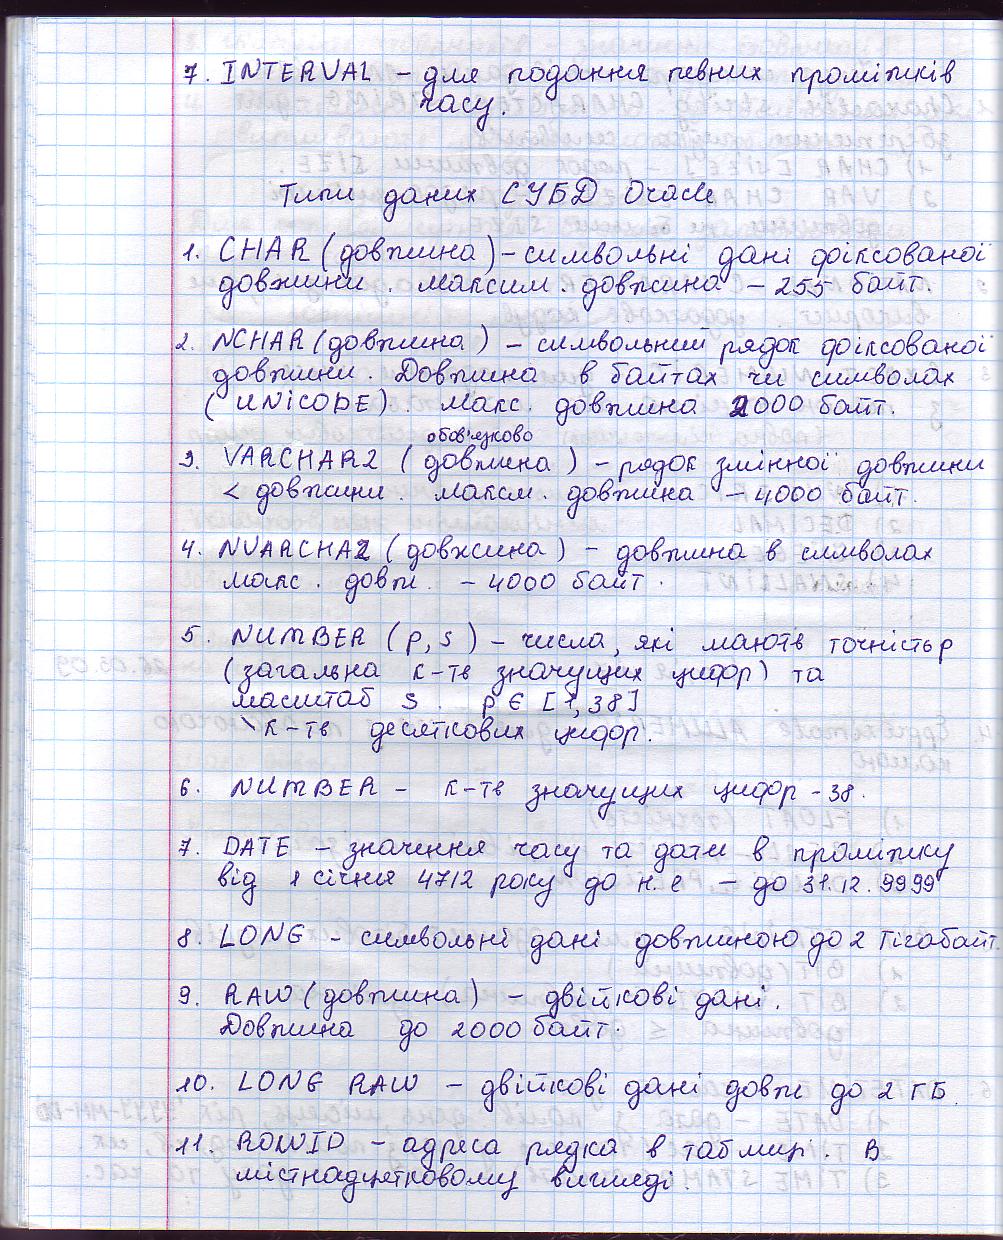 7. INTERVAL – для подання певних проміжків
часу.
Типи даних СУБД Oracle
1. CHAR (довжина) – символьні дані фіксованої
довжини. Максим. довжина – 255 байт
2. NCHAR (довжина) – символьний рядок фіксованої
довжини. Довжина в байтах чи символах
(UNICODE). Макс. довжина 2000 байт.
обов'язково
3. VARCHAR2 (довжина) – рядок змінної довжини
< довжини. Максм. довжина – 4000 байт.
4. NVARCHA2 (довжина) – довжина в символах
макс. довж. – 4000 байт.
5. NUMBER (p, s) – числа, які мають точність p
(загальна к-ть значущих цифр) та
масштаб s. p ∈ [1, 38]
к-ть десяткових цифр.
6. NUMBER – к-ть значущих цифр - 38.
7. DATE – значення часу та дати в проміжку
від 1 січня 4712 року до н.е – до 31.12.9999
8. LONG – символьні дані довжиною до 2 Гігабайт.
9. RAW (довжина) – двійкові дані.
Довжина до 2000 байт.
10. LONG RAW – двійкові дані довж до 2 ГБ.
11. ROWID – адреса рядка в таблиці. В
шістнадцятковому вигляді.